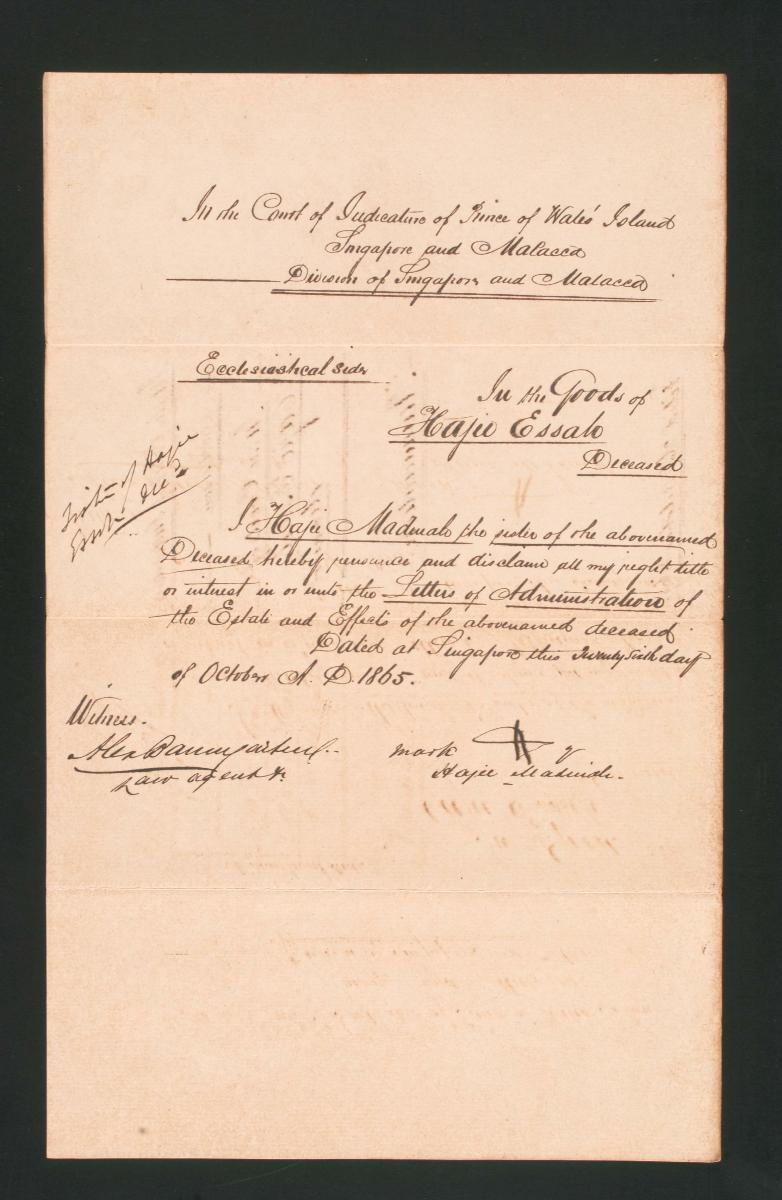 In the Court of Judicature of Prince of Wales' Island
Singapore and Malacca
Division of Singapore and Malacca
Ecclesiastical Side
In the Goods of
Hajee Essah
Deceased
Sister of Hajee
Essah Decd
I Hajee Madinah the sister of the abovenamed
Deceased hereby renounce and disclaim all my right title
or interest in or unto the Letters of Administration of
the Estate and Effects of the abovenamed deceased
Dated at Singapore this Twenty Sixth day
of October A. D. 1865.
Witness.
Alex Baumgarten
Law agent &c
mark of
Hajee Madinah.